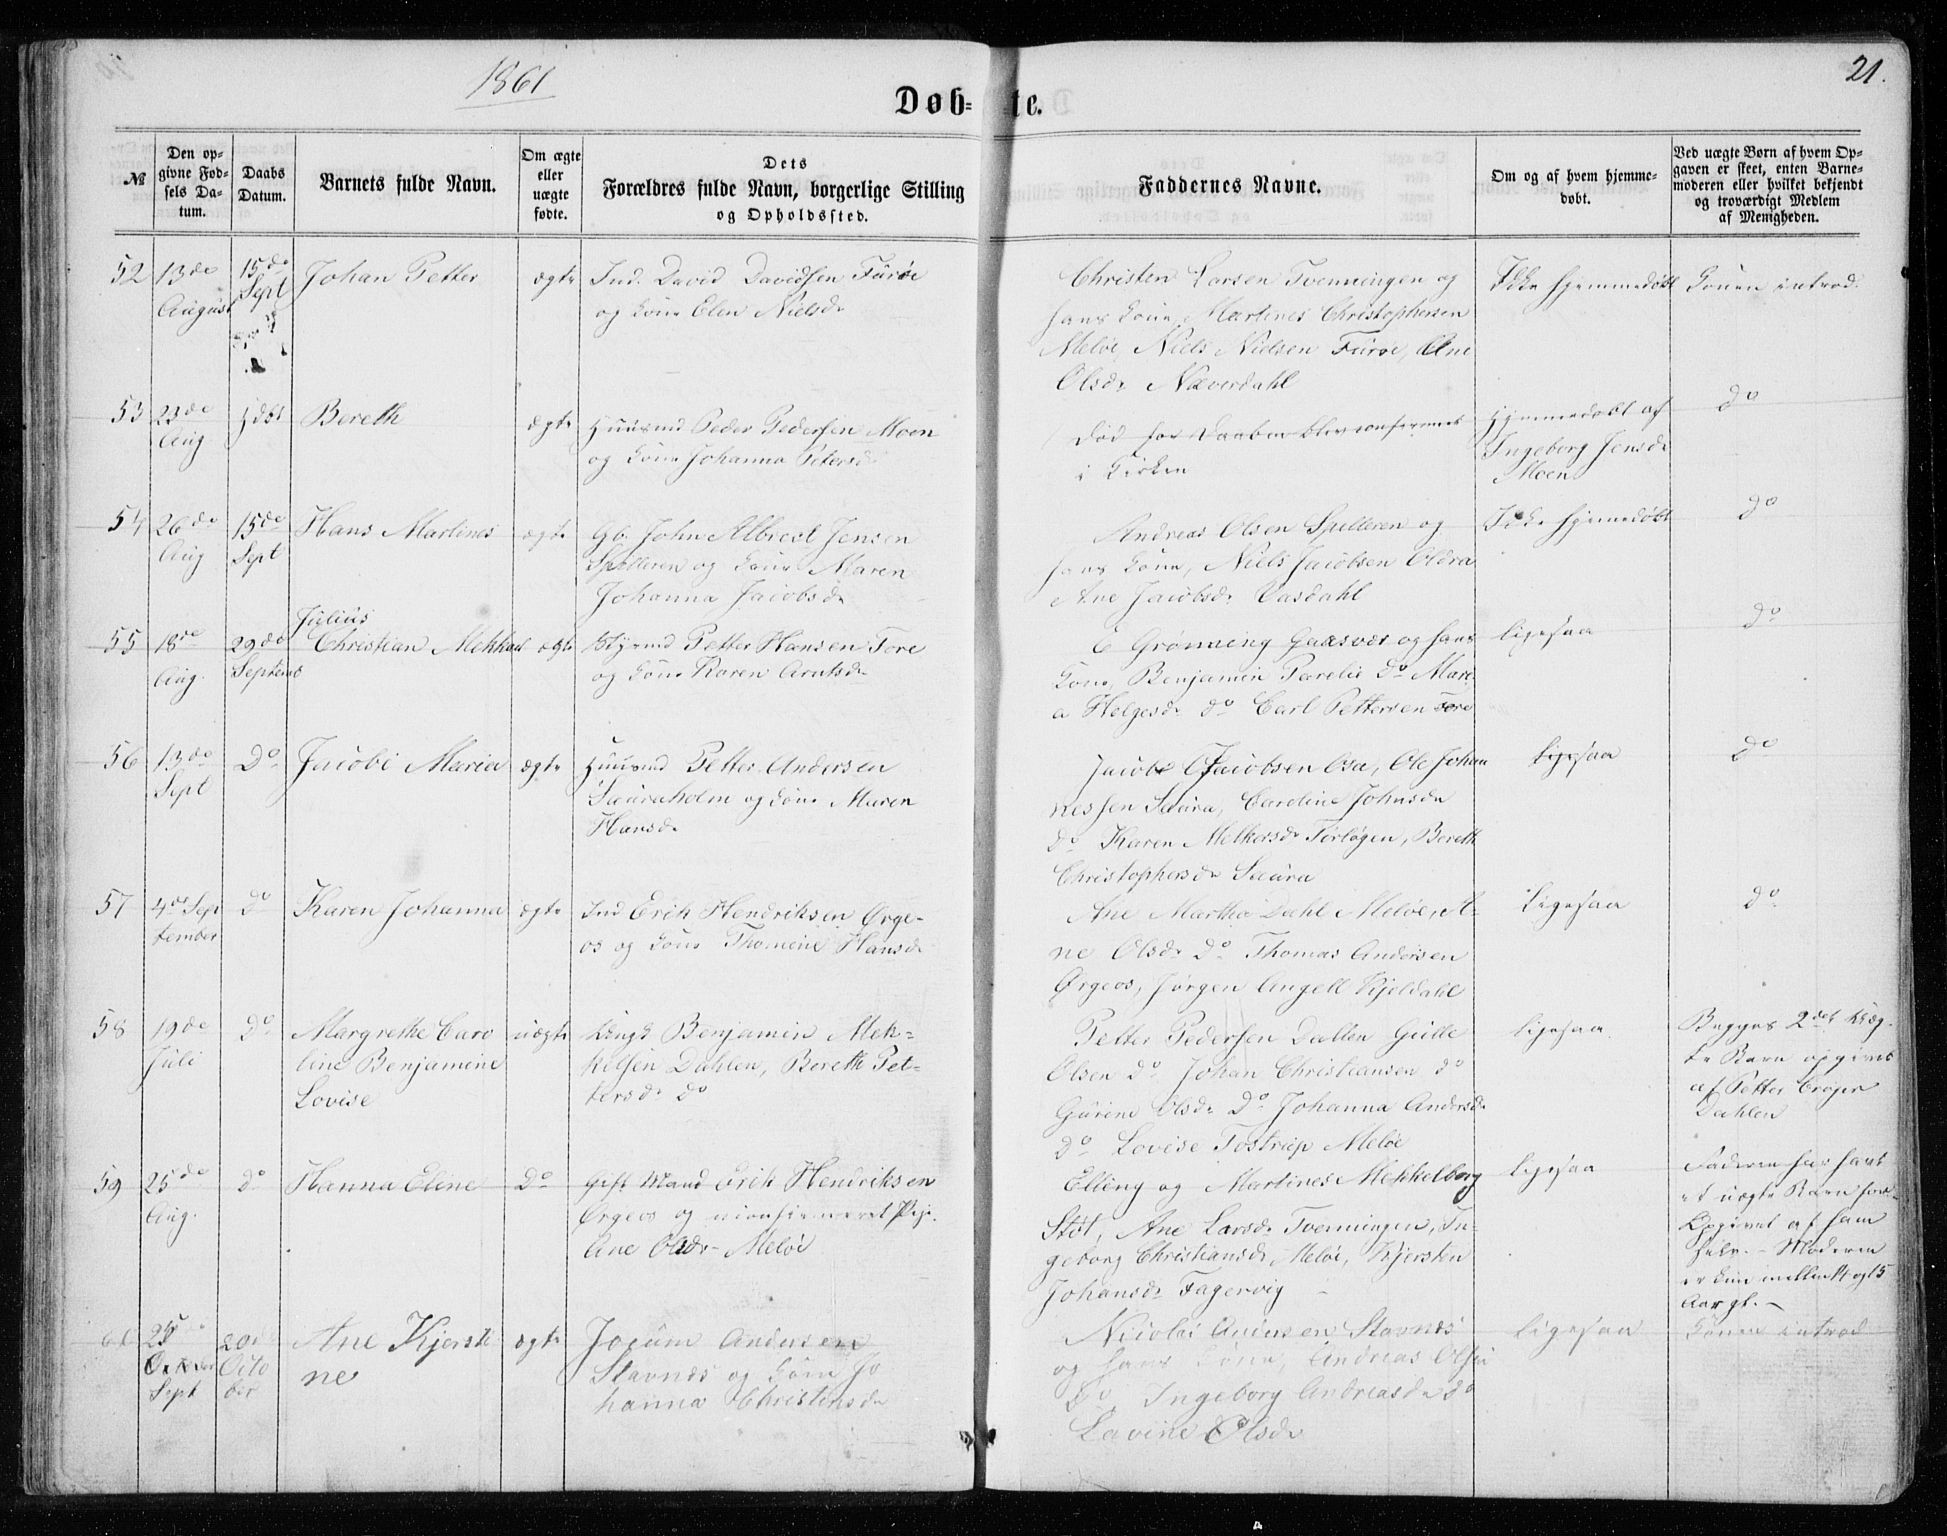 1861
21.
Døb-te.
№
Den opgivne Fødsels Datum.
Daabs Datum.
Barnets fulde Navn.
Om ægte eller uægte fødte.
Dets Forældres fulde Navn, borgerlige Stilling og Opholdssted.
Faddernes Navne.
Om og af hvem hjemmedøbt.
Ved uægte Børn af hvem Opgaven er skeet, enten Barnemoderen eller hvilket bekjendt og troværdigt Medlem af Menigheden.
52
13de August
15de Sept
Johan Petter
ægte
Ind. David Davidsen Furøe
og Kone Elen Nielsd.
Christen Larsen Tvenningen og
hans Kone, Martines Christophersen
Meløe, Niels Nielsen Furøe, Ane
Olsdr Næverdahl
Ikke hjemmedøbt
Konen introd.
53
23de Aug
Hdbt
Bereth
ægte
Huusmd Peder Pedersen Moen
og Kone Johanna Petersd
Død før Daaben blev confirmeret
i Kirken
Hjemmedøbt af
Ingeborg Jensdr
Moen
do
54
26de Aug
15de Sept
Hans Martines
ægte
Gb. John Albregt Jensen
Spilleren og Kone Maren
Johanna Jacobsdr
Andreas Olsen Spilleren og
hans Kone, Niels Jacobsen Oldra
Ane Jacobsdr Vasdahl
Ikke hjemedøbt
do
55
18de Aug.
29de Septemb
Julius
Christian Mekkael
ægte
Styrmd Petter Hansen Tore
og Kone Karen Arntsdr
E Grønneng Gaasvær og hans
Kone, Benjamin Parelie do Mare
a Helgesdr do Carl Pettersen Tore
ligesaa
do
56
13de Sept
Do
Jacobi Maria
ægte
Huusmd Petter Andersen
Sauraholm og Kone Maren
Hansdr
Jacob Jacobsen Osa, Ole Johan
nessen Saura, Caroline Johnsdr
do Karen Melkersdr Forløgen, Bereth
Christophersdr Saura
ligesaa
do
57
4de September
do
Karen Johanna
ægte
Ind Erik Hendriksen Ørge-
os og Kone Thomine Hansdr
Ane Martha Dahl Meløe, A-
ne Olsdr do Thomas Andersen
Ørgeos, Jørgen Angell Kjeldahl
ligesaa
do
58
19de Juli
Do
Margrethe Caro
line Benjamine
Lovise
uægte
Ungk Benjamin Mek-
kelsen Dahlen, Bereth Pet-
tersdr do
Petter Pedersen Dallen Gulle
Olsen do Johan Christiansen do
Gurine Olsdr Do Johanna Andersdr
do Lovise Tostrup Meløe
ligesaa
Begges 2det uæg-
te Barn opgivet
af Petter Crøger
Dahlen
59
25de Aug.
do
Hanna Eline
Do
Gift Mand Erik Hendriksen
Ørgeos og uconfirmeret Pige
Ane Olsdr Meløe
Elling og Martines Mekkelborg
Støt, Ane Larsdr Tvenningen, In-
geborg Christiansdr Meløe, Kjersten
Johansdr Fagervig
ligesaa
Faderen har havt
et uægte Barn før.
Opgivet af ham
selv. - Moderen
er kun mellem 14 og 15
Aar gl. -
25 Sept
20de October
Ane Kjersti
ne
ægte
Jocum Andersen
Stavnæs og Kone Jo
hanna Christensdr
Nicolai Andersen Stavnæs
og hans Kone, Andreas Olsen
do Ingeborg Andreasdr do
Lavine Olsdr
ligesaa
Konen introd